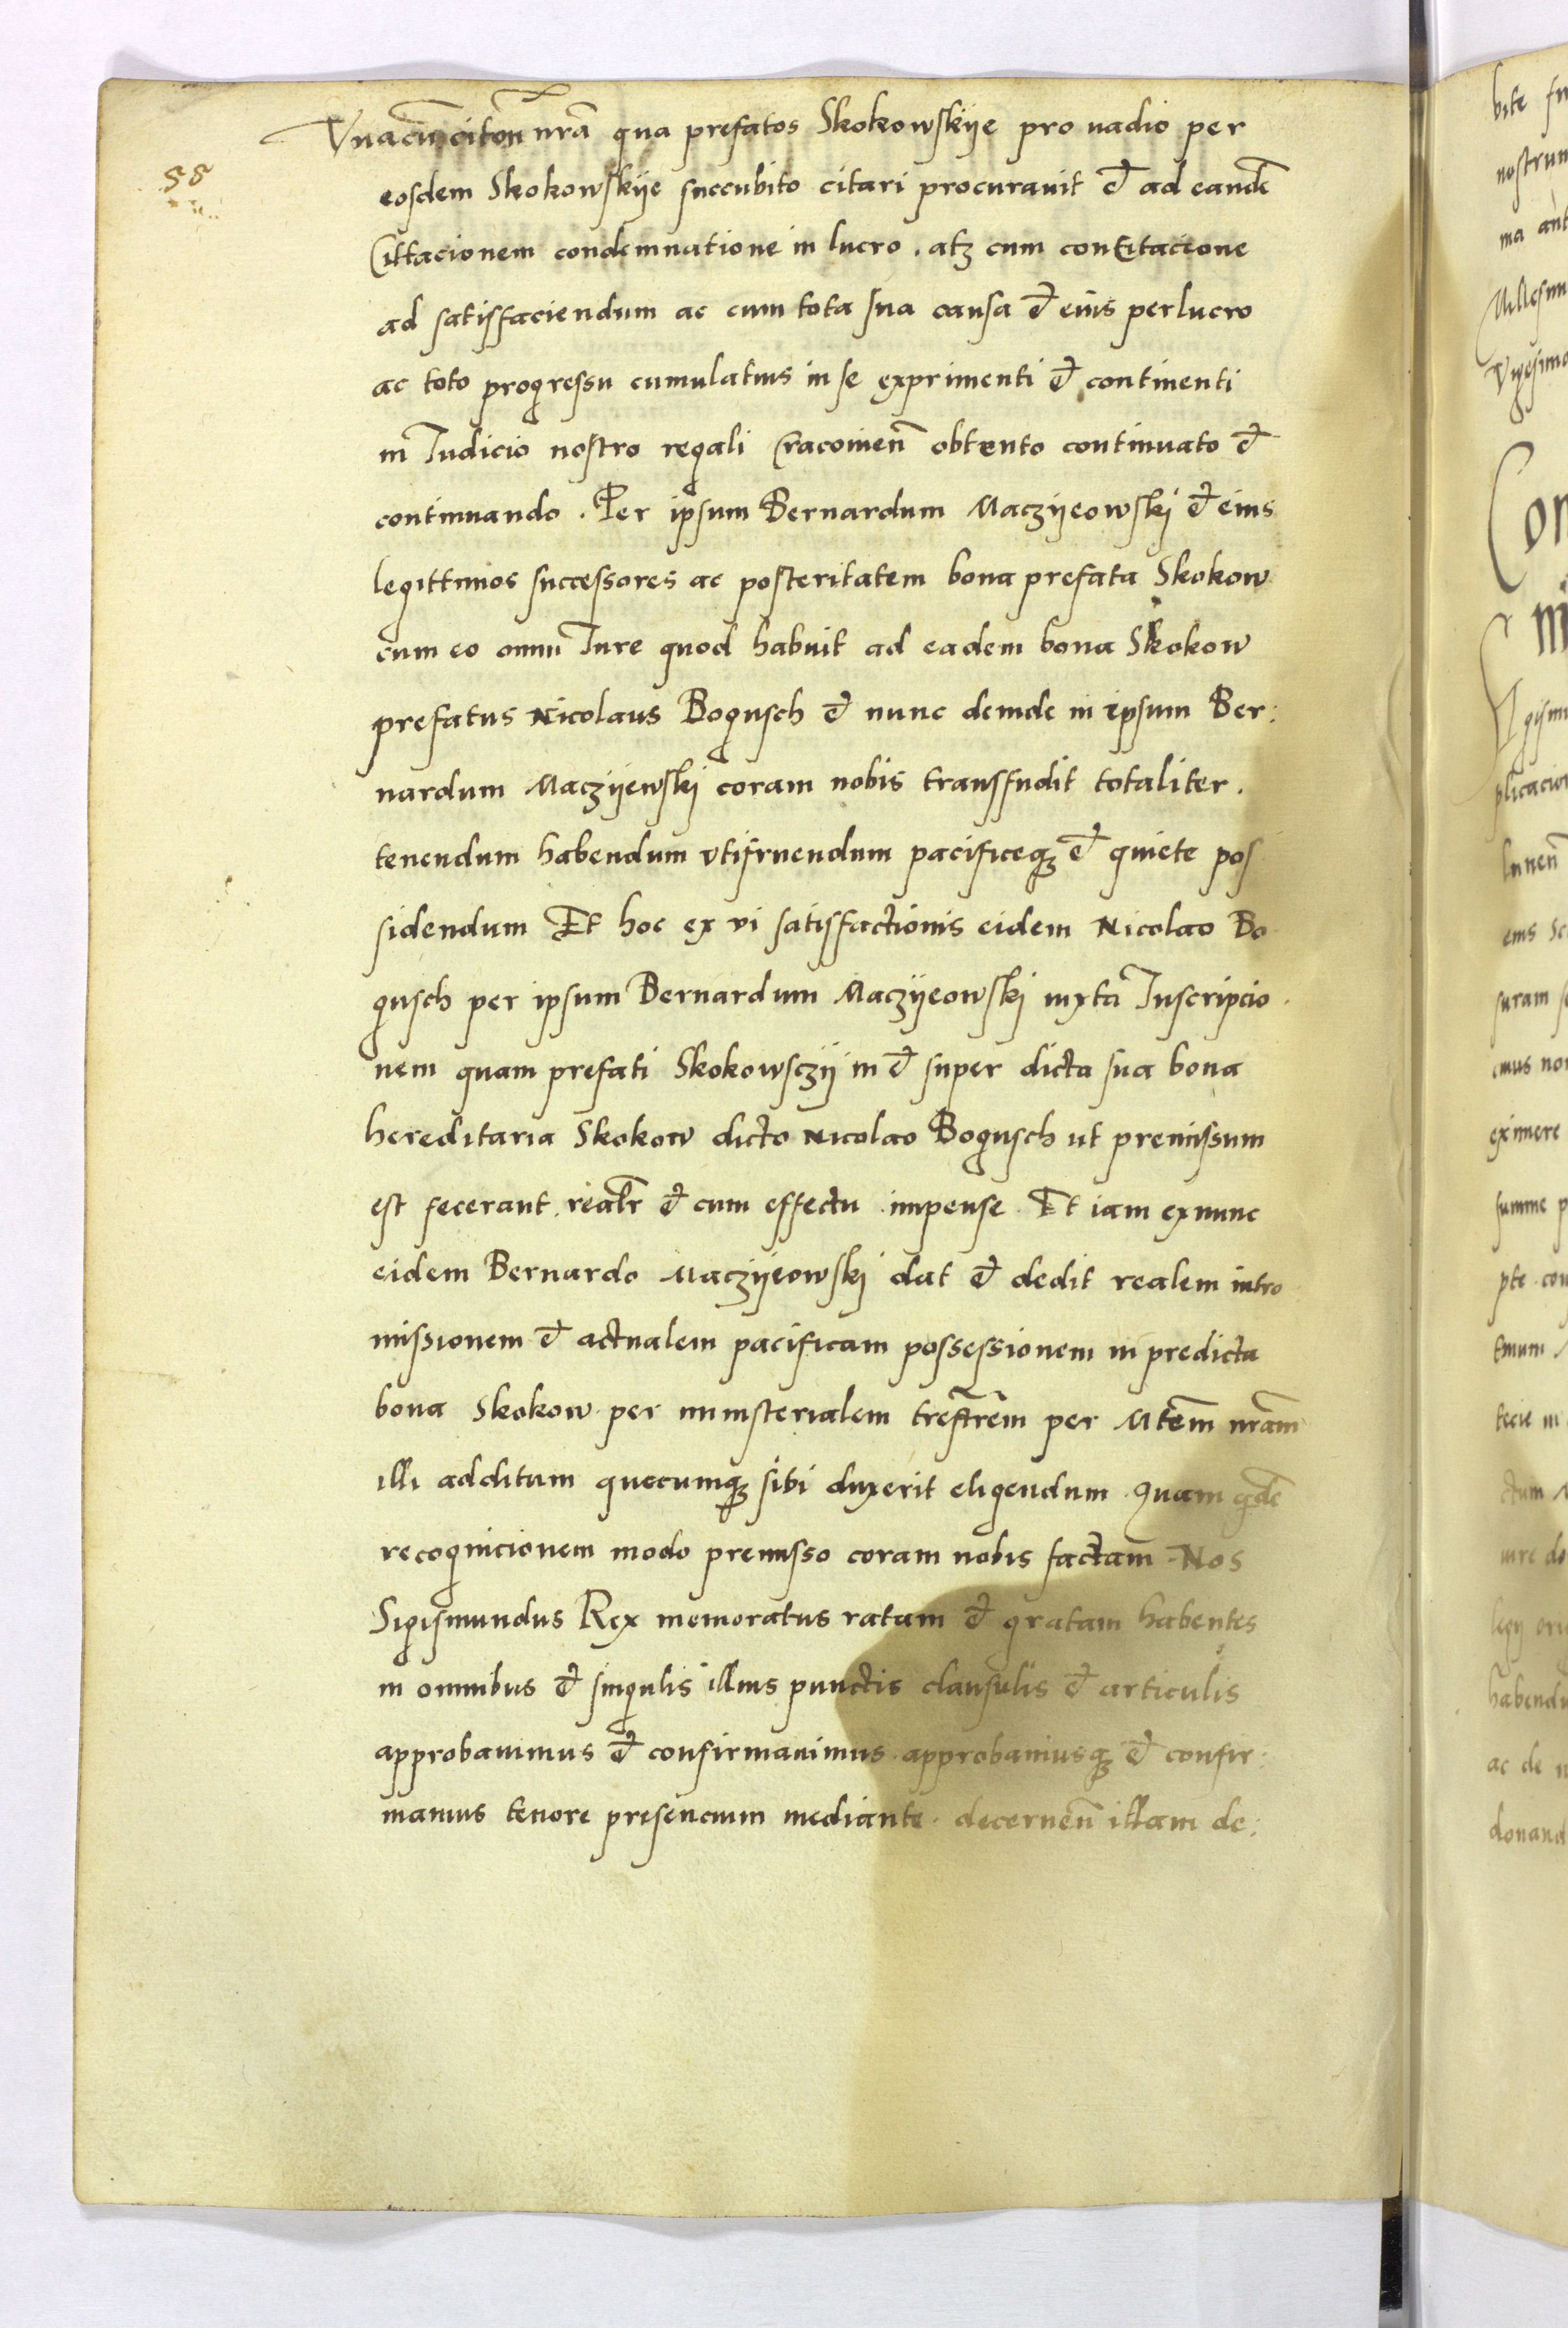 Vnacu͂ citõn nrã qua prefatos Skokowskije pro uadio per
58
eosdem Skokowskije succubito citari procurauit et ad eandẽ
Cittacionem condemnatione in lucro . atq3 cum conCitacione
ad satisfaciendum ac cum tota sua causa et eius perlucro
ac toto progressu cumulatius in se exprimenti et continenti
in Iudicio nostro regali Cracouieñ obtento continuato et
continuando . Per ipsum Bernardum Maczijeowskj et eius
legittimos successores ac posteritatem bona prefata Skokow
cum eo omni Iure quod habuit ad eadem bona Skokow
prefatus Nicolaus Bogusch et nunc deinde in ipsum Ber:
nardum Maczijewskj coram nobis transfudit totaliter .
tenendum habendum vtifruendum pacificeq3 et quiete pos
sidendum Et hoc ex vi satisfactionis eidem Nicolao Bo
gusch per ipsum Bernardum Maczijeowskj iuxta Inscripcio
nem quam prefati Skokowsczij in et super dicta sua bona
hereditaria Skokow dicto Nicolao Bogusch ut premissum
est fecerant . realr̃ et cum effectu . impense . Et iam exnunc
eidem Bernardo Maczijeowskj dat et dedit realem intro
missionem et actualem pacificam possessionem in predicta
bona Skokow per ministerialem per Mtẽm nrãm
illi additum quecumq3 sibi duxerit eligendum . Quam qdẽ
recognicionem modo premisso coram nobis factam . Nos
Sigismundus Rex memoratus ratam et gratam habentes
in omnibus et singulis illius punctis clausulis et articulis
approbauimus et confirmauimus . approbamusq3 et confir:
mamus tenore presencium mediante . decerneñ illam de:
bite
nostrum
ma
Millesim
Vigesimo
Con
plicacion
luneñ
eius
suram
cmus non
eximere
summe p
pte . con
tecie in
ctum
iure do
habendu
ac de
donand